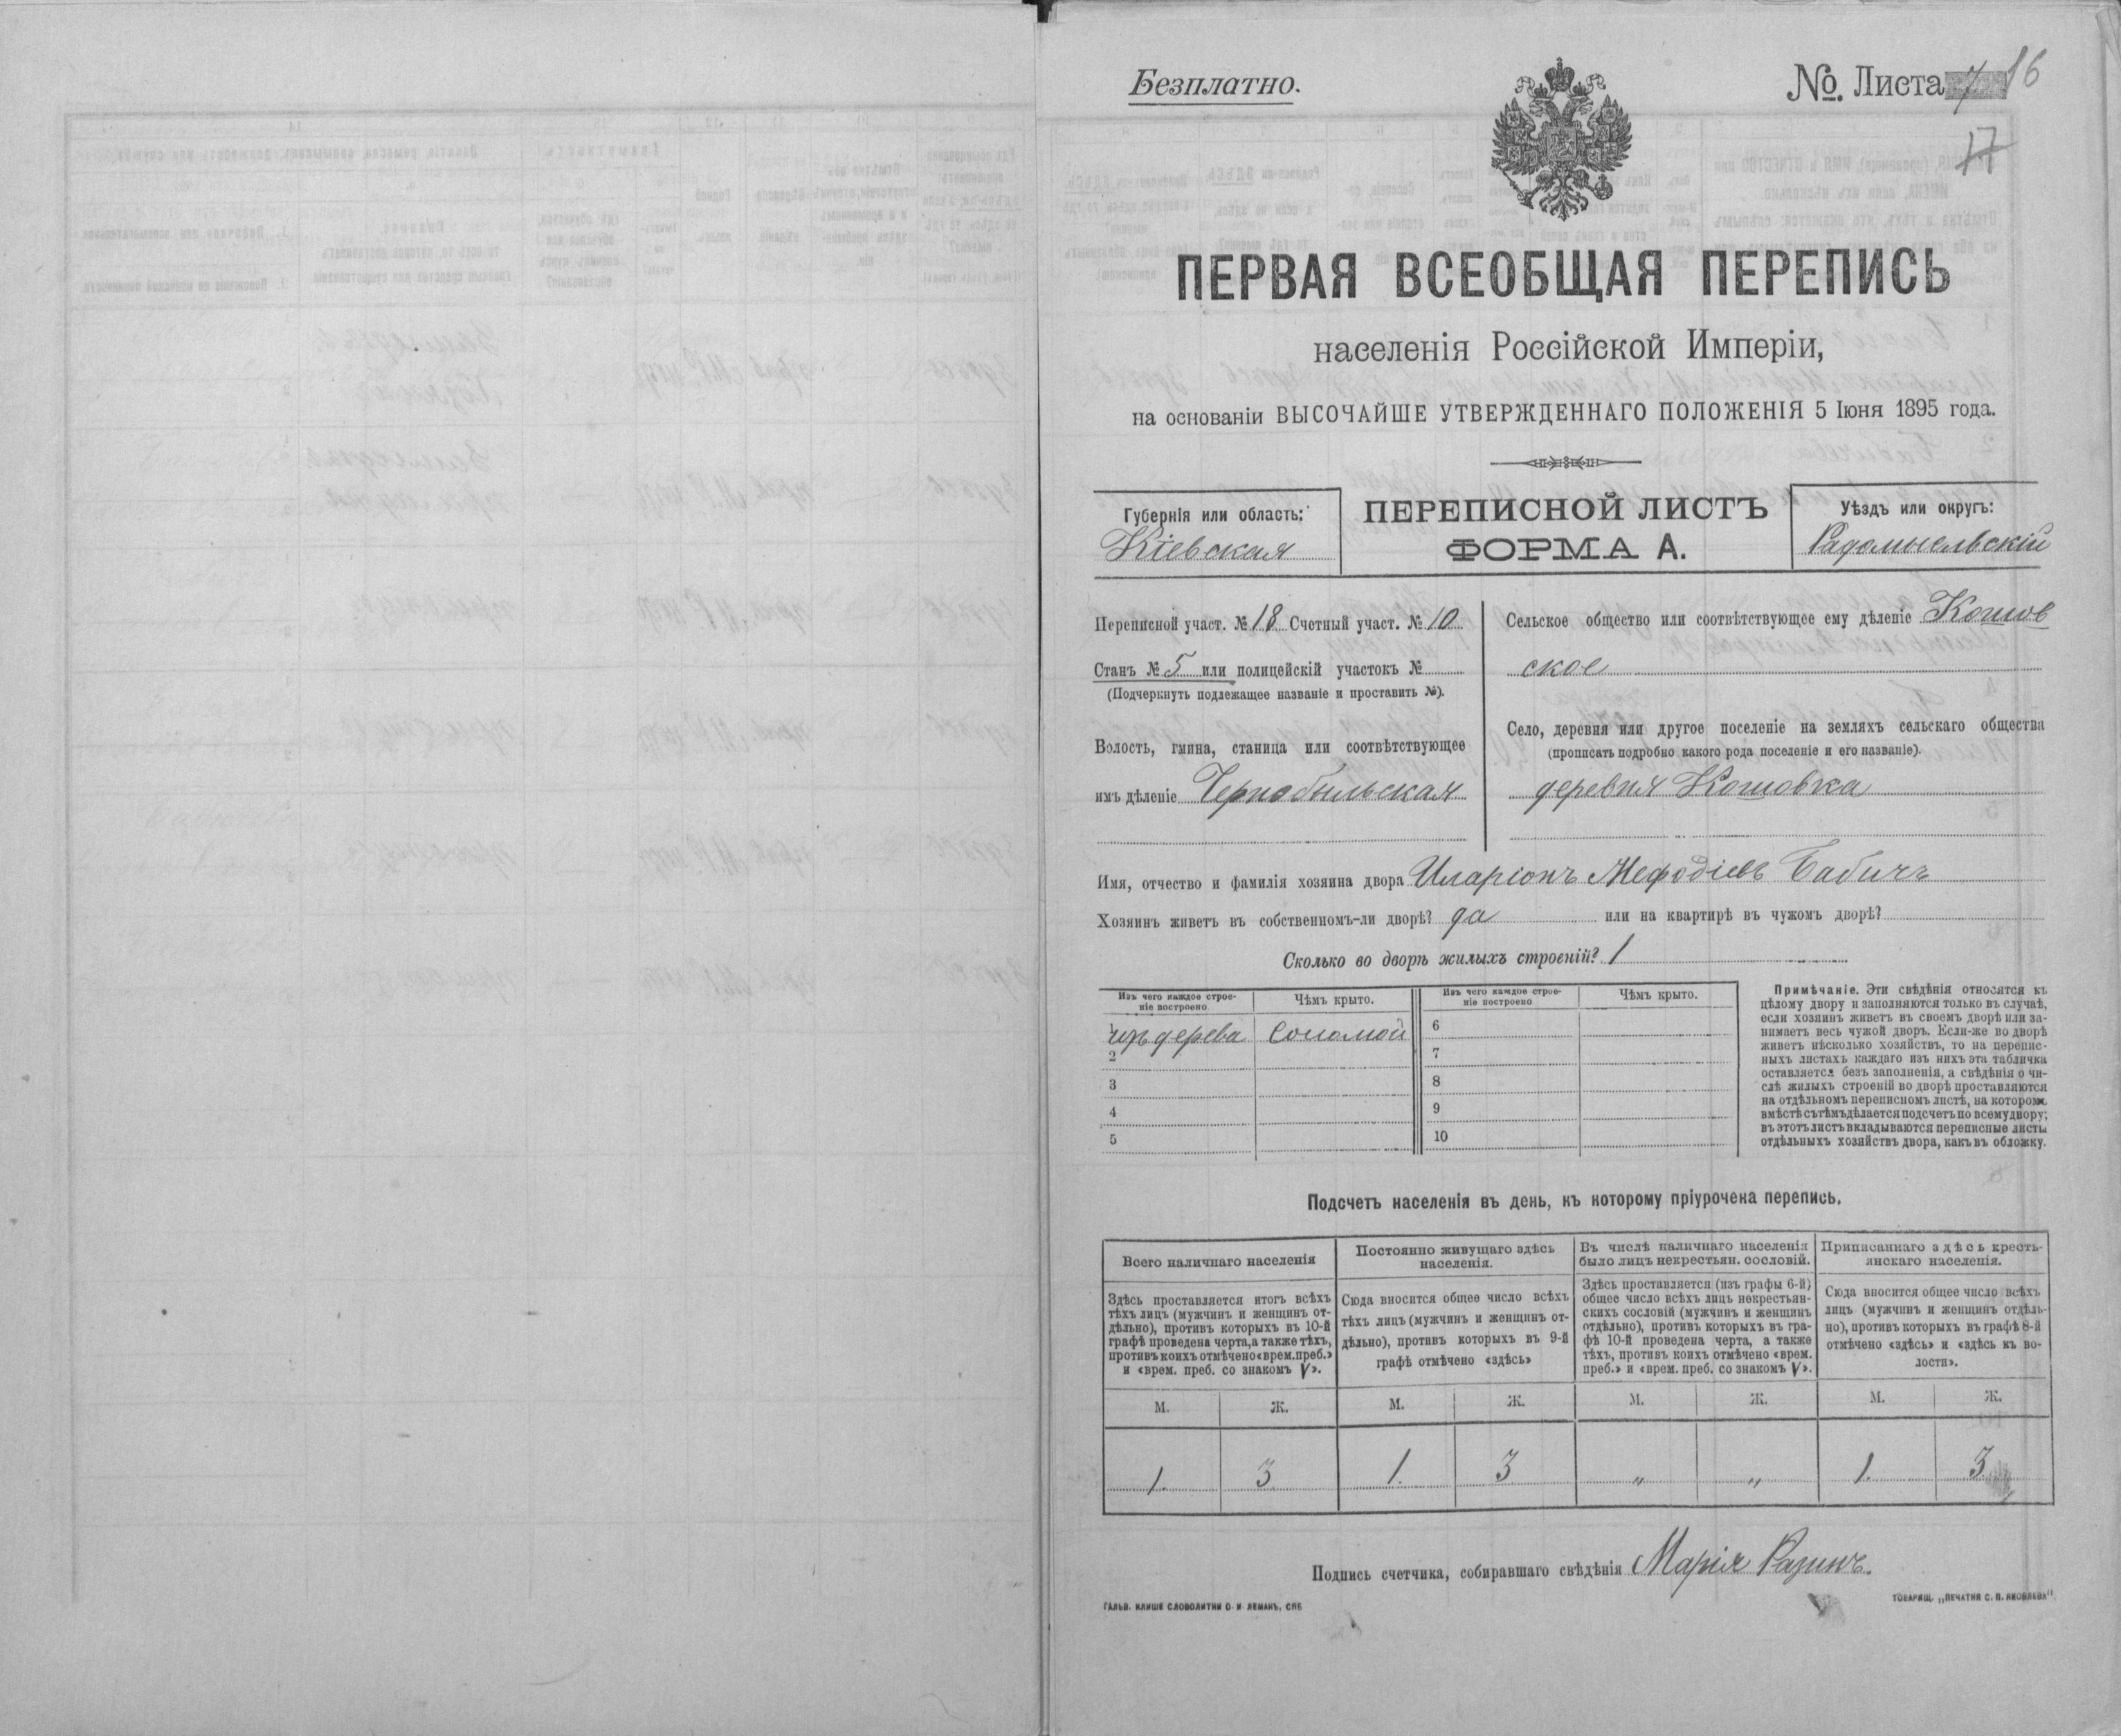 Безплатно.
№ Листа 7 16
17
ПЕРВАЯ ВСЕОБЩАЯ ПЕРЕПИСЬ
населенія Россійской Имперіи,
на основаніи ВЫСОЧАЙШЕ УТВЕРЖДЕННАГО ПОЛОЖЕНІЯ 5 Іюня 1895 года.
Губернія или область:
Кіевская
ПЕРЕПИСНОЙ ЛИСТЪ
ФОРМА А.
Уѣздъ или округъ:
Радомысльскій
Переписной участ. № 18 Счетный участ. № 10
Станъ № 5 или полицейскій участокъ №
(Подчеркнуть подлежащее названіе и проставить №).
Волость, гмина, станица или соотвѣтствующее
имъ дѣленіе Чернобыльская
Сельское общество или соотвѣтствующее ему дѣленіе Кошов
ское
Село, деревня или другое поселеніе на земляхъ сельскаго общества
(прописать подробно какого рода поселеніе и его названіе).
деревня Кошовка
Имя, отчество и фамилія хозяина двора Иларіонъ Мефодіевъ Бабичъ
Хозяинъ живетъ въ собственномъ-ли дворѣ? да или на квартирѣ въ чужомъ дворѣ?
Сколько во дворѣ жилыхъ строеній? 1
Изъ чего каждое строе-
ніе построено
Чѣмъ крыто.
Изъ чего каждое строе-
ніе построено
Чѣмъ крыто.
изъ дерева Соломой 6
2 7
3 8
4 9
5 10
Примѣчаніе. Эти свѣдѣнія относятся къ
цѣлому двору и заполняются только въ случаѣ,
если хозяинъ живетъ въ своемъ дворѣ или за-
нимаетъ весь чужой дворъ. Если-же во дворѣ
живетъ нѣсколько хозяйствъ, то на перепис-
ныхъ листахъ каждаго изъ нихъ эта табличка
оставляется безъ заполненія, а свѣдѣнія о чи-
слѣ жилыхъ строеній во дворѣ проставляются
на отдѣльномъ переписномъ листѣ, на которомъ
вмѣстѣ съ тѣмъ дѣлается подсчетъ по всему двору;
въ этотъ листъ вкладываются переписные листы
отдѣльныхъ хозяйствъ двора, какъ въ обложку.
Подсчетъ населенія въ день, къ которому пріурочена перепись.
Всего наличнаго населенія
Здѣсь проставляется итогъ всѣхъ
тѣхъ лицъ (мужчинъ и женщинъ от-
дѣльно), противъ которыхъ въ 10-й
графѣ проведена черта, а также тѣхъ,
противъ коихъ отмѣчено «врем. преб.»
и «врем. преб. со знакомъ V».
Постоянно живущаго здѣсь
населенія.
Сюда вносится общее число всѣхъ
тѣхъ лицъ (мужчинъ и женщинъ от-
дѣльно), противъ которыхъ въ 9-й
графѣ отмѣчено «здѣсь»
Въ числѣ наличнаго населенія
было лицъ некрестьян. сословій.
Здѣсь проставляется (изъ графы 6-й)
общее число всѣхъ лицъ некрестьян-
скихъ сословій (мужчинъ и женщинъ
отдѣльно), противъ которыхъ въ гра-
фѣ 10-й проведена черта, а также
тѣхъ, противъ коихъ отмѣчено «врем.
преб.» и «врем. преб. со знакомъ V».
Приписаннаго здѣсь кресть-
янскаго населенія.
Сюда вносится общее число всѣхъ
лицъ (мужчинъ и женщинъ отдѣль-
но), противъ которыхъ въ графѣ 8-й
отмѣчено «здѣсь» и «здѣсь къ во-
лости».
М. Ж. М. Ж. М. Ж. М. Ж.
1. 3 1. 3 „ „ 1. 3
Подпись счетчика, собиравшаго свѣдѣнія Марія Разинъ.
ГАЛЬВ. КЛИШЕ СЛОВОЛИТНИ О. И. ЛЕМАНЪ, СПБ
ТОВАРИЩ. „ПЕЧАТНЯ С. П. ЯКОВЛЕВА"